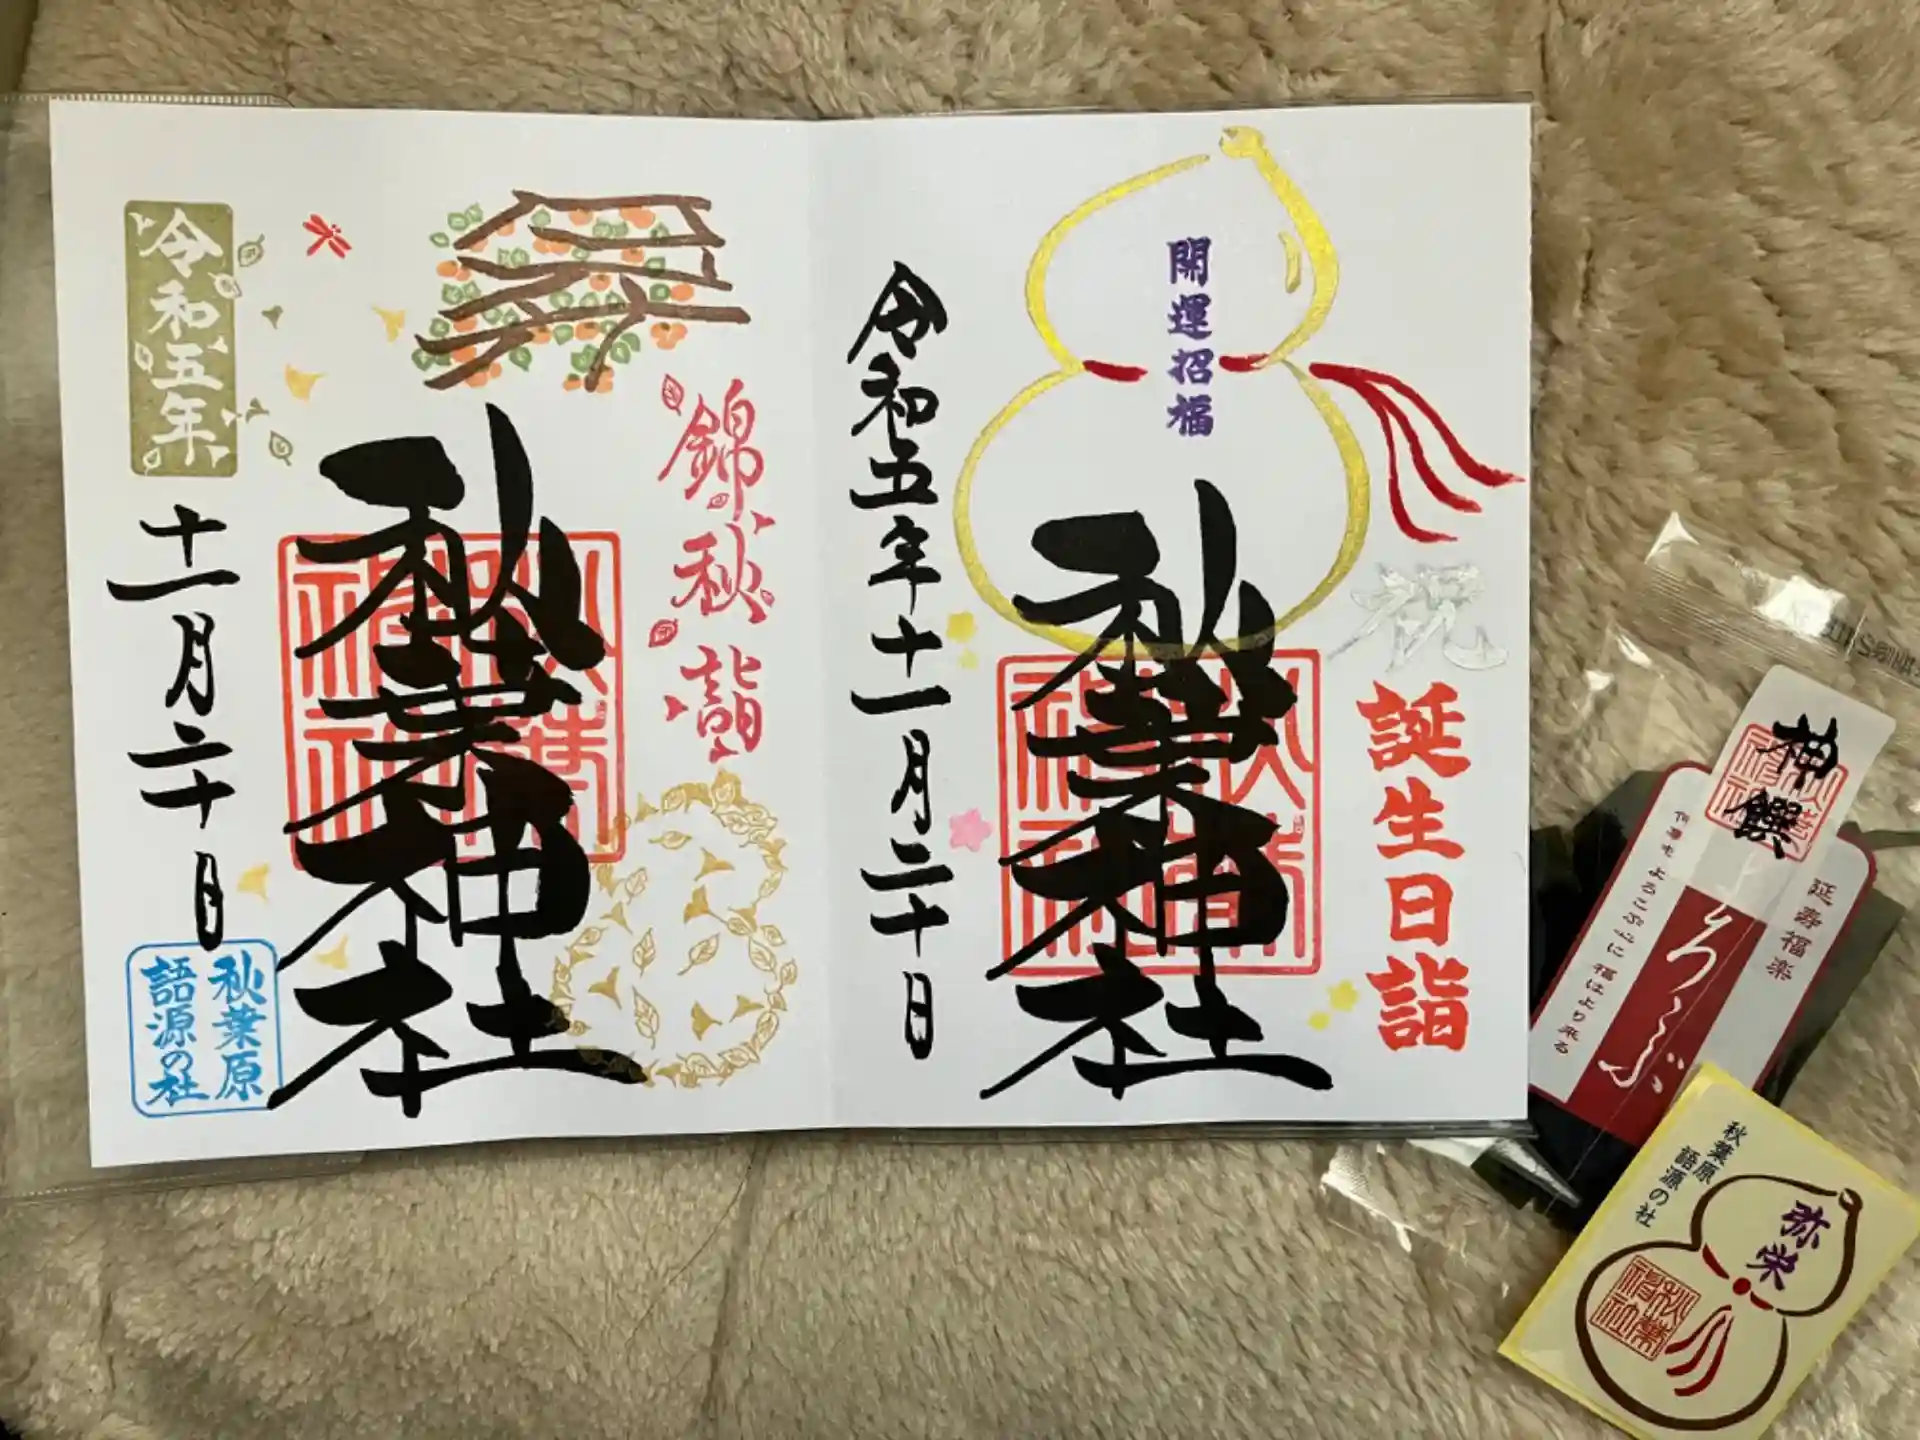 開運招福
祝
誕生日詣
秋葉神社
令和五年十一月二十日
錦秋詣
秋葉神社
令和五年
十一月二十日
秋葉原
語源の社
神饌
延寿福楽
何事もよろこぶに福はより来る
秋葉原
語源の社
弥栄
秋葉神社